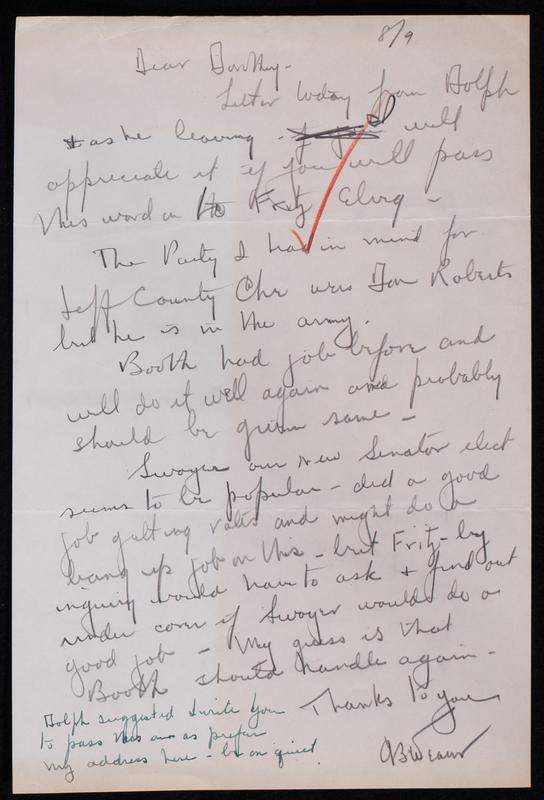 8/9
Dear Dorothy -
Letter today from Dolph
as he leaving - I will
appreciate it if you will pass
this word on to Fritz -
The Party I had in mind for
Jeff County Chr was Don Roberts
but he is in the army.
Booth had job before and
will do it well again and probably
should be given same -
Swoyer our new Senator elect
seems to be popular - did a good
job getting votes and might do a
bang up job on this - but Fritz - by
inquiry would have to ask + find out
under cover if Swoyer would do a
good job - My guess is that
Booth should handle again -
Thanks to you
Dolph suggested I write you
to pass this on as prefer
my address here - be on quiet.